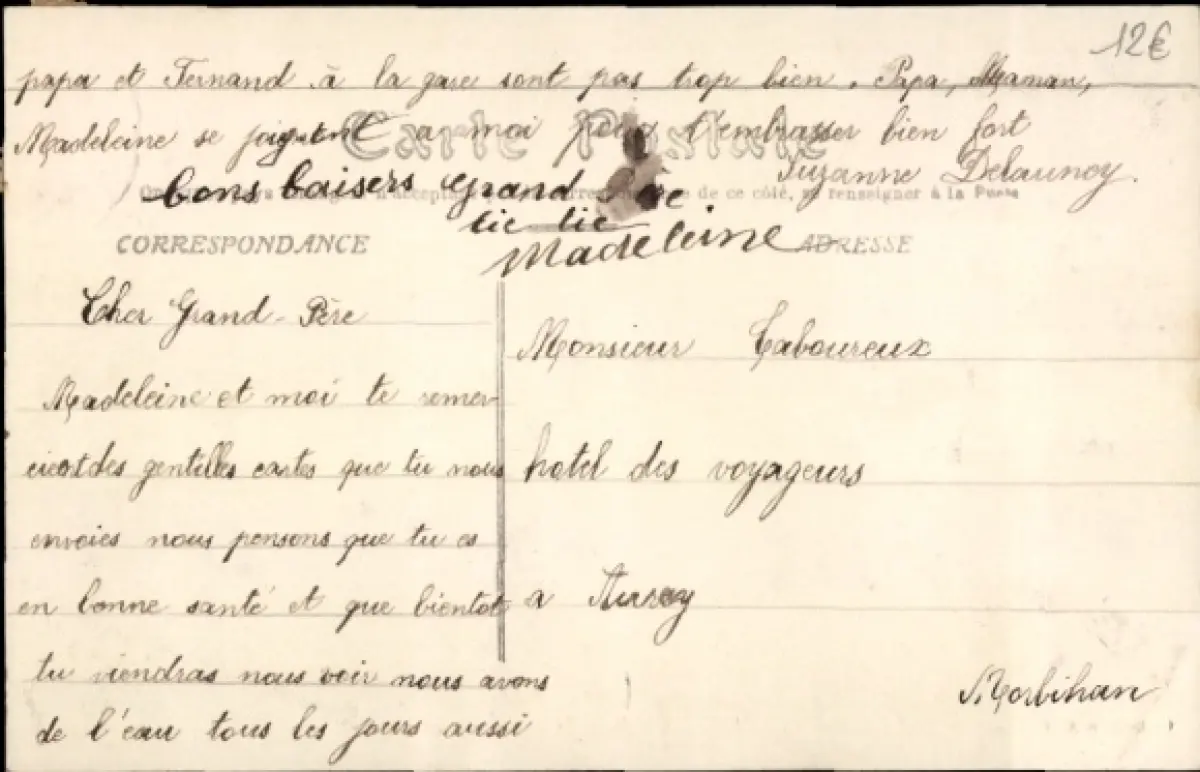 12€
papa et Fernand à la gare sont pas trop bien. Papa, Maman,
Madeleine se joignent a moi pour t'embrasser bien fort
Suzanne Delaunoy.
Carte Postale
de ce côté, se renseigner à la Poste
bons baisers Grand Père
Madeleine
CORRESPONDANCE
ADRESSE
Cher Grand-Père
Madeleine et moi te remer-
cions des gentilles cartes que tu nous
envoies nous pensons que tu es
en bonne santé et que bientot
tu viendras nous voir nous avons
de l'eau tous les jours aussi
Monsieur Taboureux
hotel des voyageurs
a Auray
Morbihan